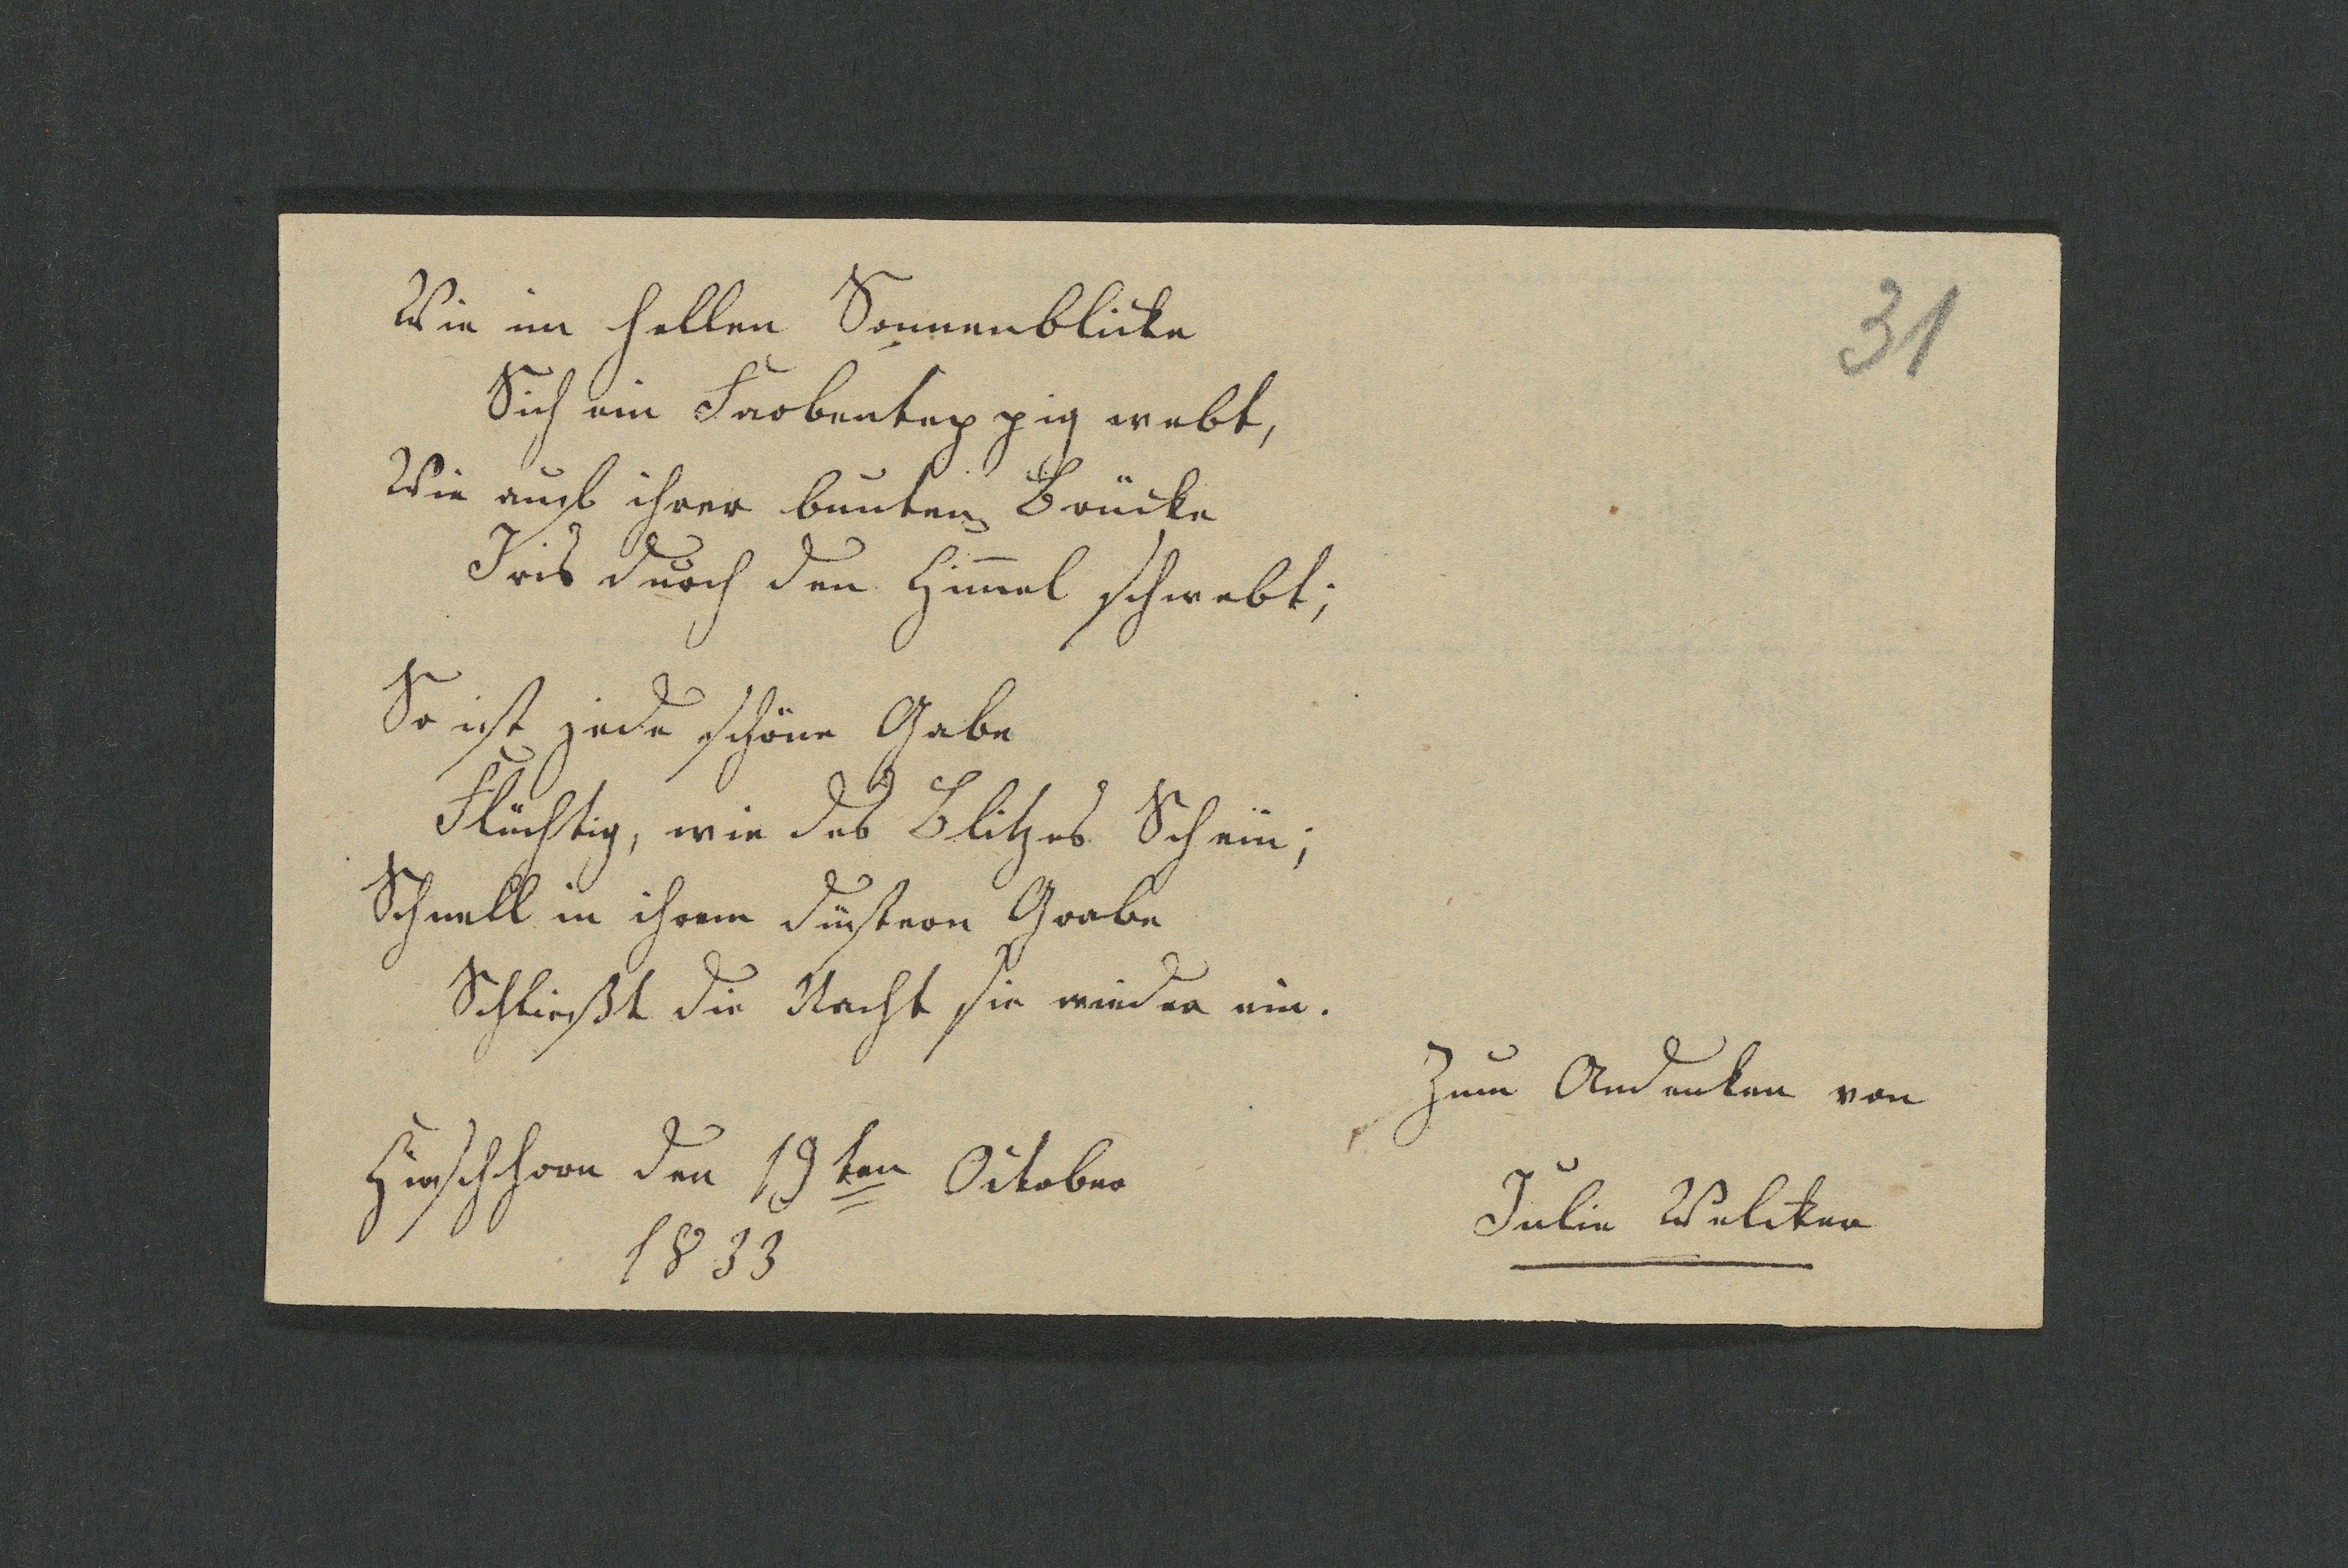 Wie im hellen Sonnenblicke
31
Sich ein Farbenteppig webt,
Wie auf ihrer bunten Brücke
Iris durch den Him̅el schwebt;
So ist jede schöne Gabe
Flüchtig, wie des Blitzes Schein;
Schnell in ihrem düstern Grabe
Schließt die Nacht sie wieder ein.
Zum Andenken von
Hirschhorn den 19ten October
1833
Julie Welcker